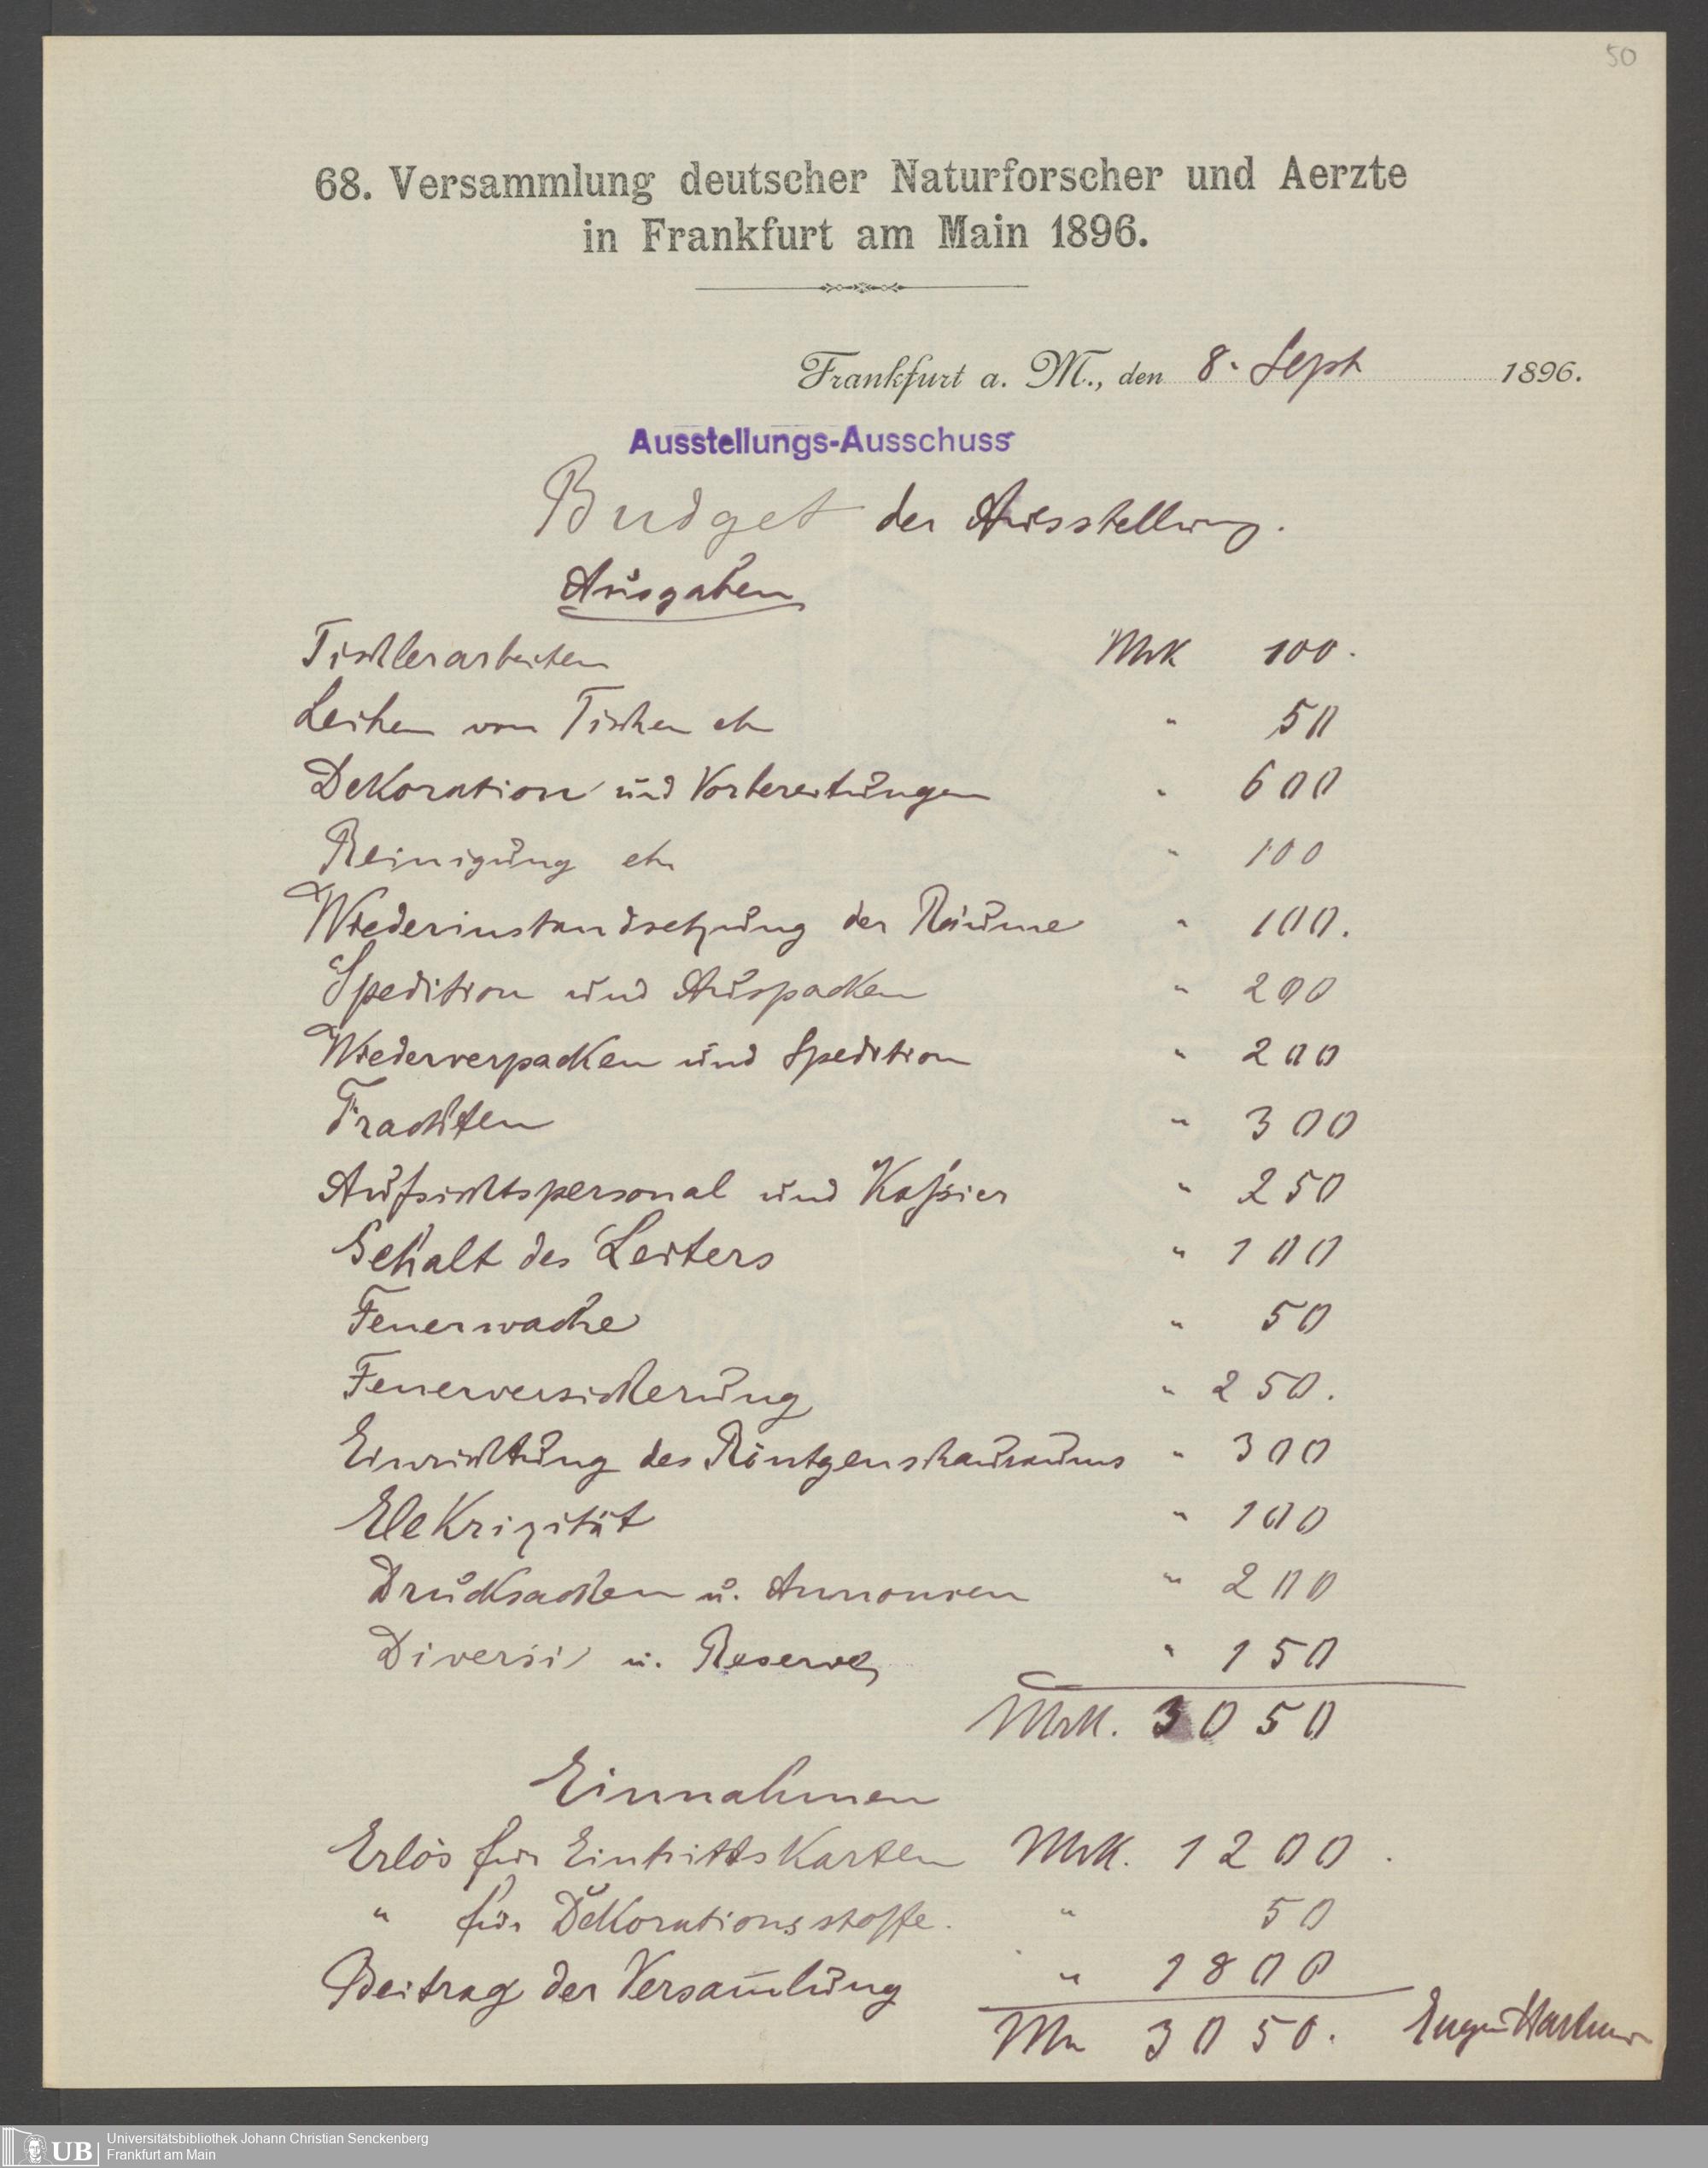 50
68. Versammlung deutscher Naturforscher und Aerzte
in Frankfurt am Main 1896.
Frankfurt a. M., den 8. Sept 1896.
Ausstellungs-Ausschuss
Budget der Ausstellung.
Ausgaben
Tischlerarbeiten Mrk 100.
Leihen von Tischen etc " 50
Dekoration und Vorbereitungen " 600
Reinigung etc " 100
Wiederinstandsetzung der Räume " 100.
Spedition und Auspacken " 200
Wiederverpacken und Spedition " 200
Frachten " 300
Aufsichtspersonal und Kassier " 250
Gehalt des Leiters " 100
Feuerwache " 50
Feuerversicherung " 250.
Einrichtung des Röntgenschauraums " 300
Elekrizität " 100
Drucksachen u. Annoncen " 200
Diversi u. Reserve " 150
Mrk. 3050
Einnahmen
Erlös für Eintrittskarten Mrk. 1200.
" für Dekorationsstoffe. " 50
Beitrag der Versam̅lung " 1800
Mk 3050. Eugen Hartmann
UB Universitätsbibliothek Johann Christian Senckenberg
Frankfurt am Main